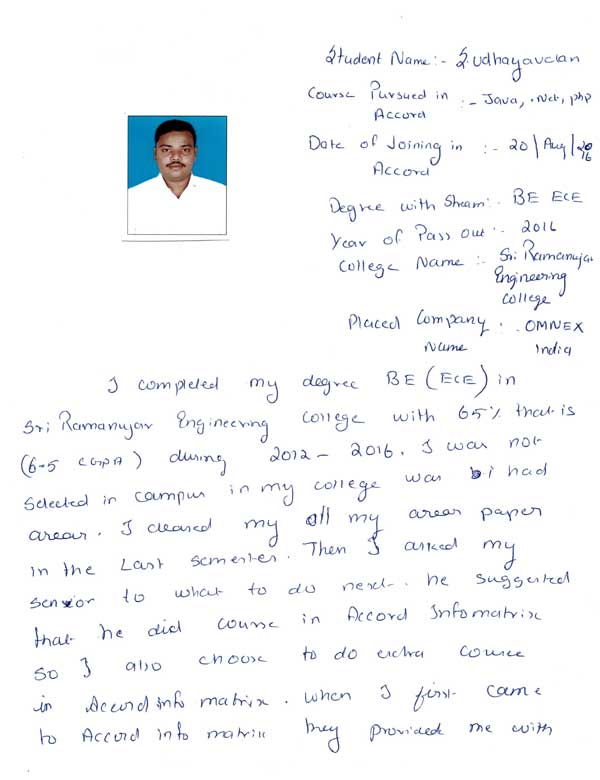 Student Name:- S.udhayavelan
Course Pursued in :- Java, .Net, php
Accord
Date of Joining in :- 20/Aug/2016
Accord
Degree with Stream:. BE ECE
Year of Pass out :- 2016
College Name :- Sri Ramanujar
Engineering
College
Placed Company : . OMNEX
Name India
I completed my degree BE (ECE) in
Sri Ramanujar Engineering college with 65% that is
(6-5 CGPA) during 2012 - 2016. I was not
selected in campus in my college was i had
arear. I cleared my all my arear paper
in the Last semester. Then I asked my
senior to what to do next. he suggested
that he did course in Accord Infomatrix
so I also choose to do extra course
in Accord info matrix. when I first came
to Accord info matrix they provided me with